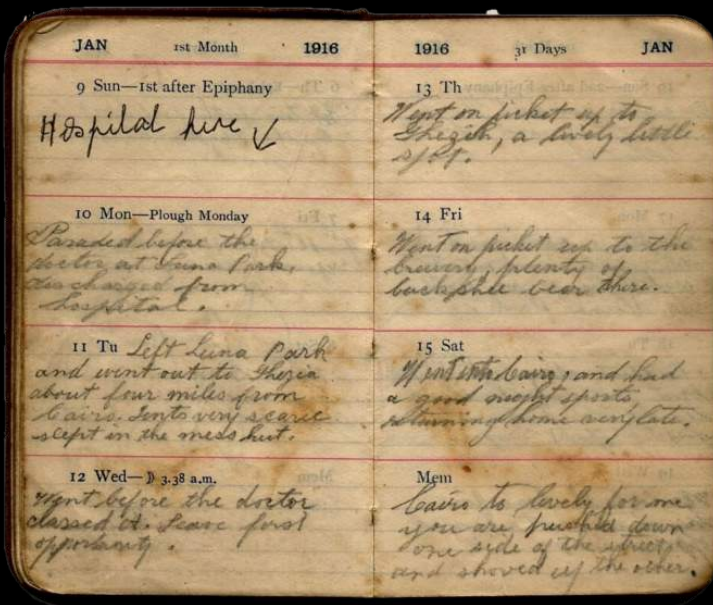 JAN 1st Month 1916
9 Sun—1st after Epiphany
Hospital here ↓
10 Mon—Plough Monday
Paraded before the
doctor at Luna Park,
discharged from
hospital.
11 Tu Left Luna Park
and went out to Ghezia
about four miles from
Cairo. Tents very scarce
slept in the mess hut.
12 Wed—☽ 3.38 a.m.
Went before the doctor
classed A. Leave first
opportunity.
1916 31 Days JAN
13 Th
Went on picket up to
Ghezieh, a lively little
spot.
14 Fri
Went on picket up to the
brewery, plenty of
buckshee beer there.
15 Sat
Went into Cairo, and had
a good night sports,
returning home very late.
Mem
Cairo to lovely for me
you are pushed down
one side of the street
and shoved up the other.